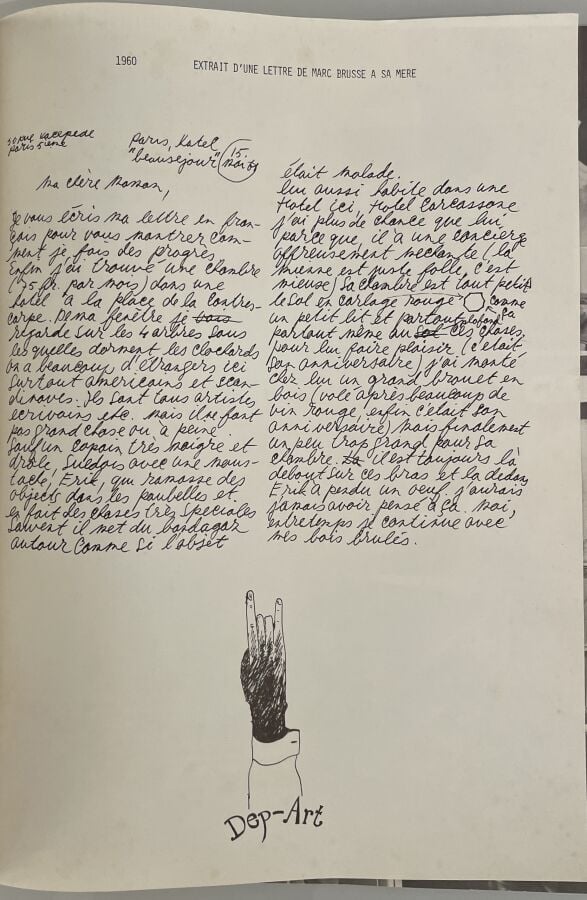 1960
EXTRAIT D'UNE LETTRE DE MARC BRUSSE A SA MERE
50 rue Lacepede
Paris 5ième
Paris, Hotel
"beauséjour"
15
mai 61
ma chère maman,
je vous écris ma lettre en fran-
çais pour vous montrer com-
ment je fais des progrès.
Enfin j'ai trouvé une chambre
(75 fr. par mois) dans une
hotel à la place de la contres-
carpe. De ma fenêtre je vois
regarde sur les 4 arbres sous
les quelles dorment les clochards
on a beaucoup d'étrangers ici
surtout américains et scan-
dinaves. ils sont tous artistes
écrivains etc. mais il ne font
pas grand chose ou à peine.
sauf un copain très maigre et
drole, suédois avec une mous-
tache, Erik, qui ramasse des
objects dans les poubelles et
en fait des choses très speciales
souvent il met du bandagaz
autour comme si l'objet
était malade.
lui aussi habite dans une
Hotel ici, Hotel Carcassone
j'ai plus de chance que lui
parce que, il a une concierge
affreusement mechante (la
mienne est juste folle, c'est
mieuse) sa chambre est tout petit
le sol en carlage rouge comme
un petit lit et partout, plafond ça
partout même au sol ces choses,
pour lui faire plaisir (c'était
son anniversaire) j'ai monté
chez lui un grand brouet en
bois (volé après beaucoup de
vin rouge, enfin c'était son
anniversaire) mais finalement
un peu trop grand pour sa
chambre. la il est toujours là
debout sur ces bras et la dedans
Erik a pendu un oeuf. j'aurais
jamais avoir pensé à ça. moi,
entretemps je continue avec
mes bois brulés.
Dep-Art